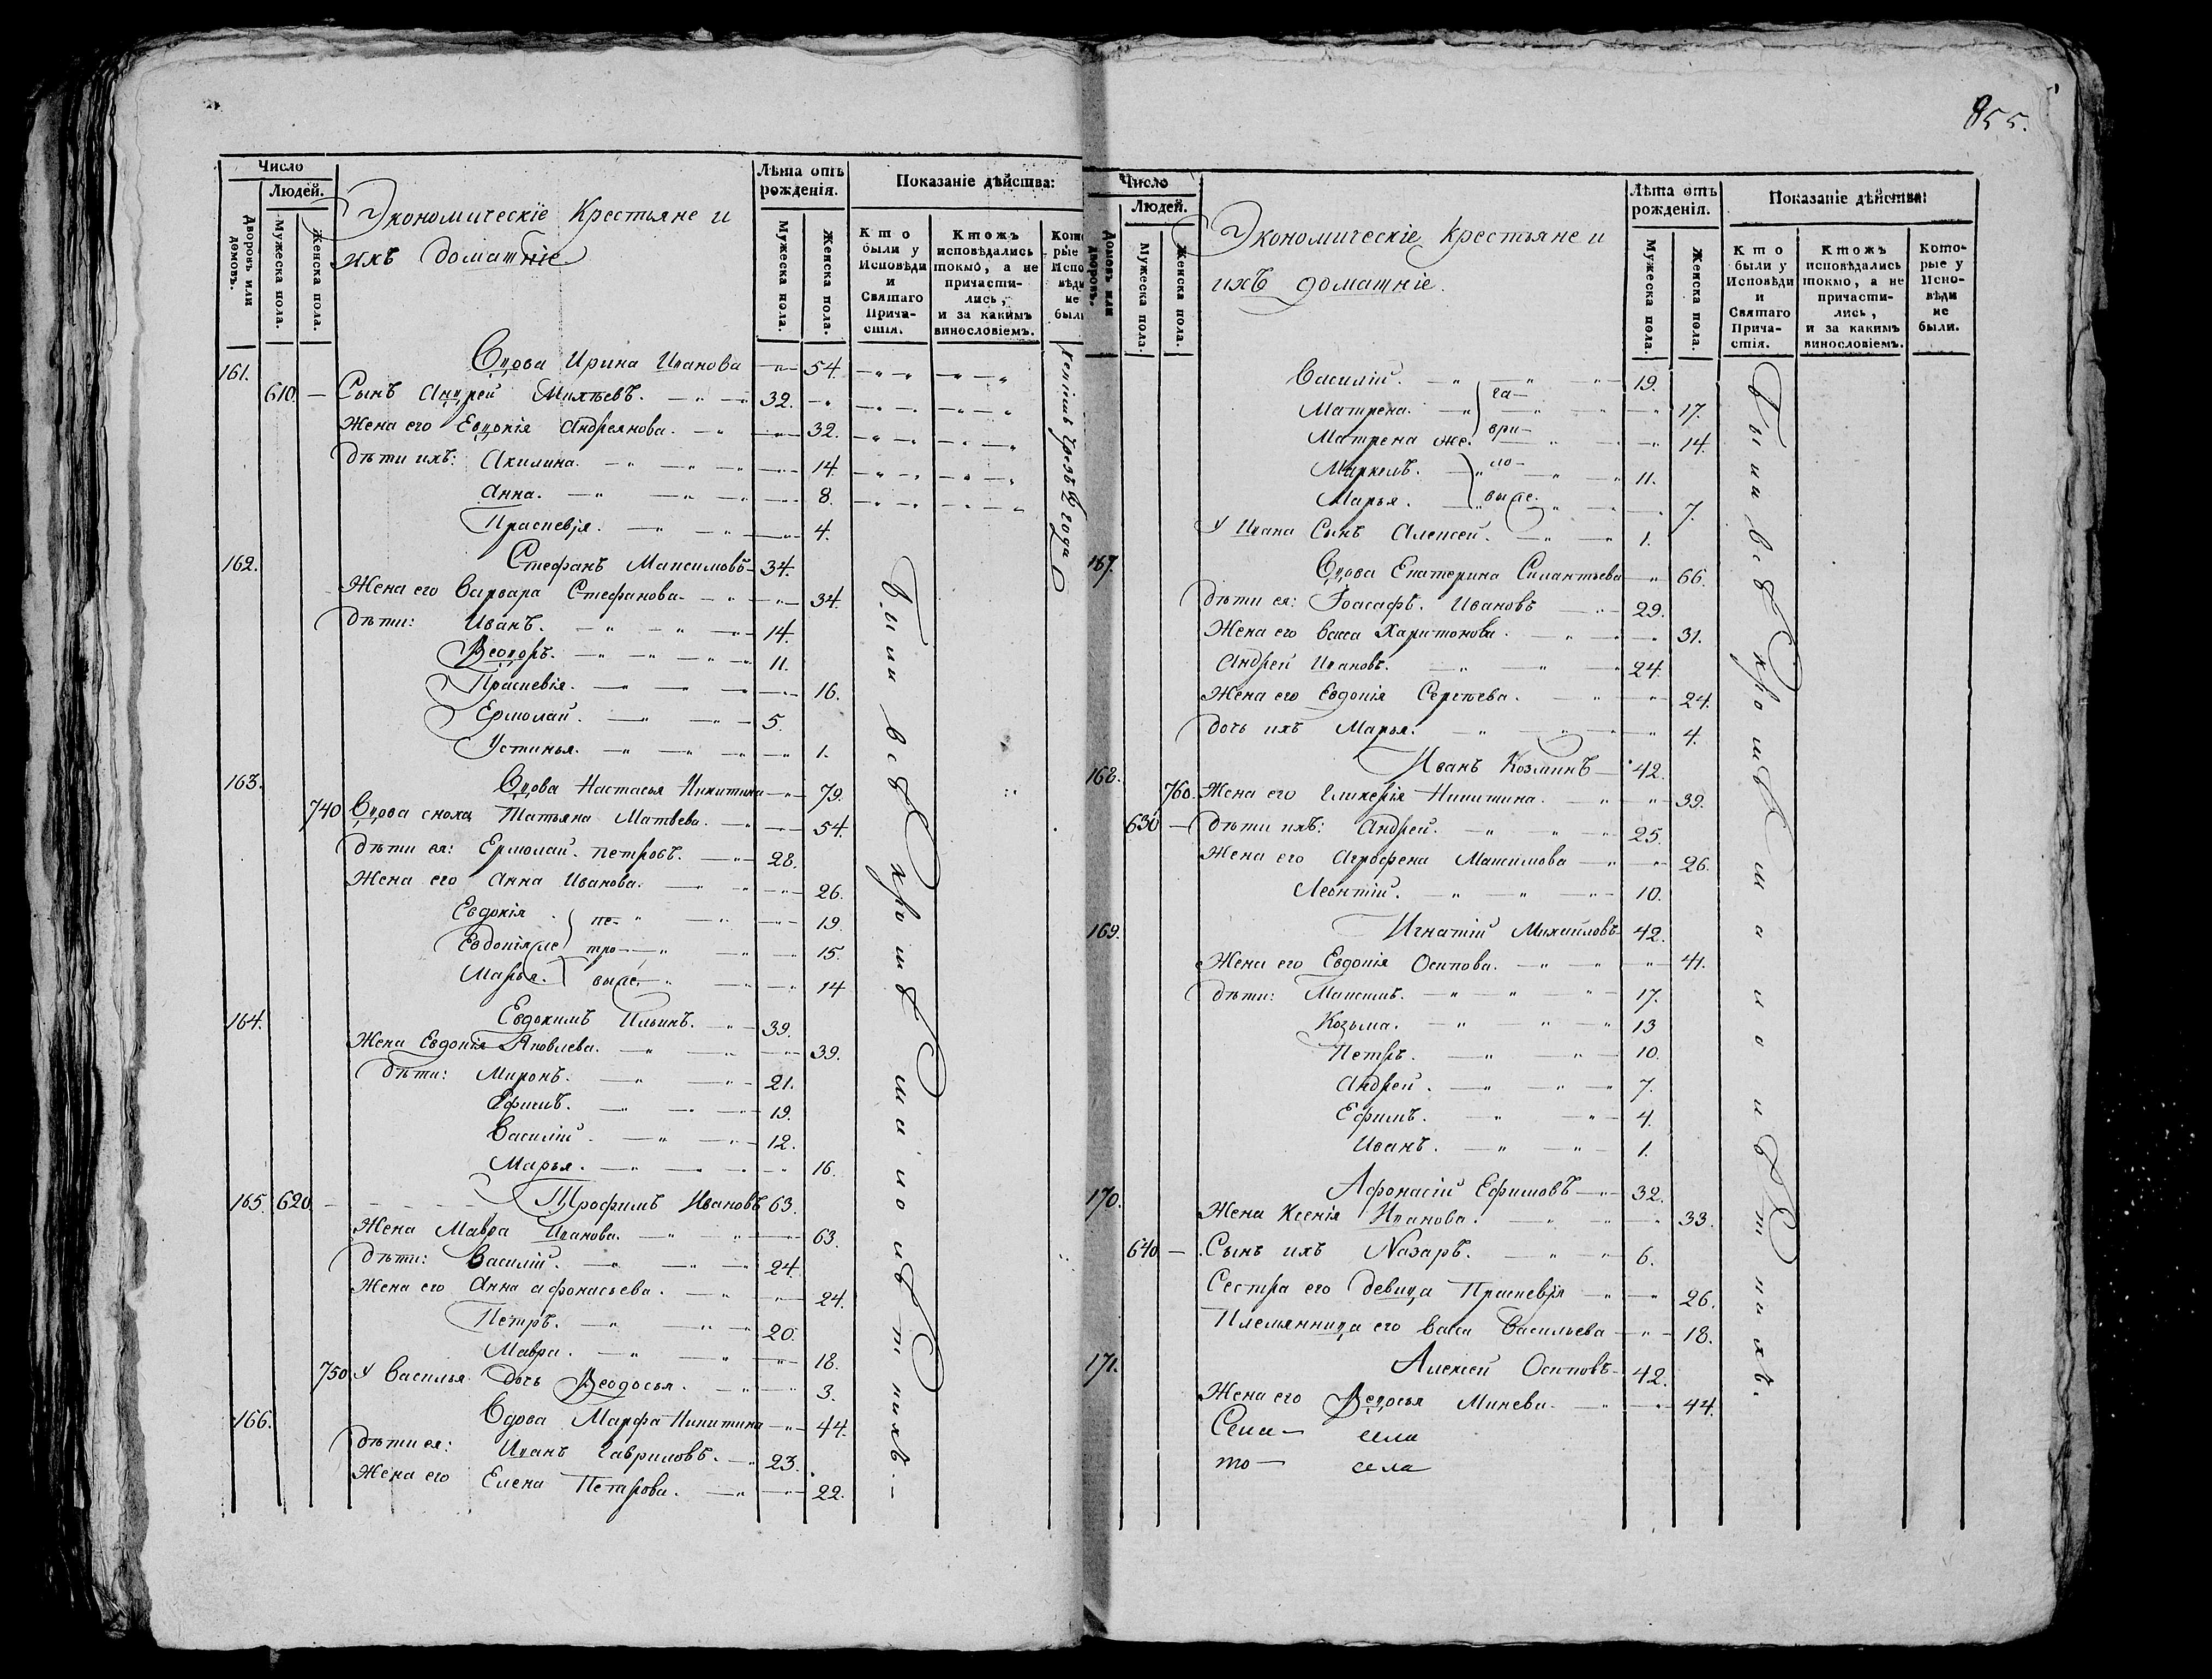 Число
Людей.
Дворовъ или домовъ.
Мужеска пола.
Женска пола.
Экономическіе Крестьяне и
ихъ домашніе
Лѣта отъ рожденія.
Мужеска пола.
Женска пола.
Показаніе дѣйства:
Кто были у Исповѣди и Святаго Прича-стія.
Ктожъ исповѣдались токмо, а не причасти-лись, и за какимъ винословіемъ.
161. Вдова Ирина Иванова 54.
610. Сынъ Андрей Михѣевъ. 32.
Жена его Евдокія Андреянова. 32.
Дѣти ихъ: Акилина. 14.
Анна. 8.
Прасковѣя. 4.
162. Стефанъ Максимовъ 34.
Жена его Варвара Стефанова 34.
Дѣти: Иванъ. 14.
Ѳеодоръ. 11.
Прасковія. 16.
Ермолай. 5.
Устинья. 1.
163. Вдова Настасья Никитина 79.
740 Вдова сноха Татьяна Матвѣева. 54.
Дѣти ея: Ермолай Петровъ. 28.
Жена его Анна Иванова. 26.
Евдокія пе- 19.
Евдокія же тро- 15.
Марья. вы же. 14
164. Евдокимъ Ильинъ. 39.
Жена Евдокія Яковлева. 39.
Дѣти: Миронъ. 21.
Ефимъ. 19.
Василій. 12.
Марья. 16.
165. 620. Трофимъ Ивановъ 63.
Жена Мавра Иванова. 63.
Дѣти: Василій. 24.
Жена его Анна Афонасьева. 24.
Петръ. 20.
Мавра. 18.
750 У Василья дочь Ѳеодосья. 3.
166. Вдова Марфа Никитина 44.
Дѣти ея: Иванъ Гавриловъ. 23.
Жена его Елена Петрова. 22.
Были всѣ кромѣ
чрезъ 2 года
855.
Число
Людей.
Домовъ или дворовъ.
Мужеска пола.
Женска пола.
Экономическіе крестьяне и
ихъ домашніе.
Лѣта отъ рожденія.
Мужеска пола.
Женска пола.
Показаніе дѣйства:
Кто были у Исповѣди и Святаго Прича-стія.
Ктожъ исповѣдались токмо, а не причасти-лись, и за какимъ винословіемъ.
Кото-рые у Испо-вѣди не были.
Василій. 19.
Матрена. га- 17.
Матрена же. ври- 14.
Маркелъ. ло- 11.
Марья. вы же. 7.
У Ивана Сынъ Алексей. 1.
167. Вдова Екатерина Силантьева 66.
Дѣти ея: Іоасафъ Ивановъ 29.
Жена его Васса Харитонова. 31.
Андрей Ивановъ. 24.
Жена его Евдокія Сергѣева. 24.
Дочь ихъ Марья. 4.
168. Иванъ Козминъ 42.
760. Жена его Гликерія Никитина. 39.
630 Дѣти ихъ: Андрей. 25.
Жена его Агрофена Максимова 26.
Леонтій. 10.
169. Игнатій Михайловъ 42.
Жена его Евдокія Осипова. 41.
Дѣти: Максимъ. 17.
Козьма. 13
Петръ. 10.
Андрей. 7.
Ефимъ. 4.
Иванъ. 1.
170. Афонасій Ефимовъ 32.
Жена Ксенія Иванова. 33.
640 Сынъ ихъ Назаръ. 6.
Сестра его девица Прасковѣя 26.
Племянница его Васса Васильева 18.
171. Алексей Осиповъ 42.
Жена его Ѳедосья Минева. 44.
Села
то села
Были всѣ кромѣ